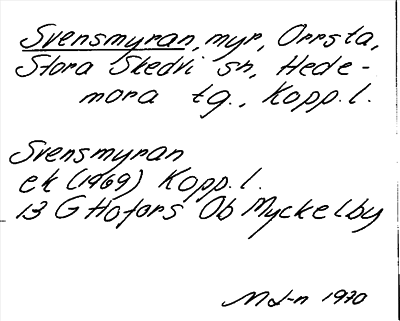 Svensmyran, myr, Orrsta,
Stora Skedvi sn, Hede-
mora tg., Kopp.l.
Svensmyran
ek (1969) Kopp.l.
13 G Hofors 0b Myckelby
M L-n 1970